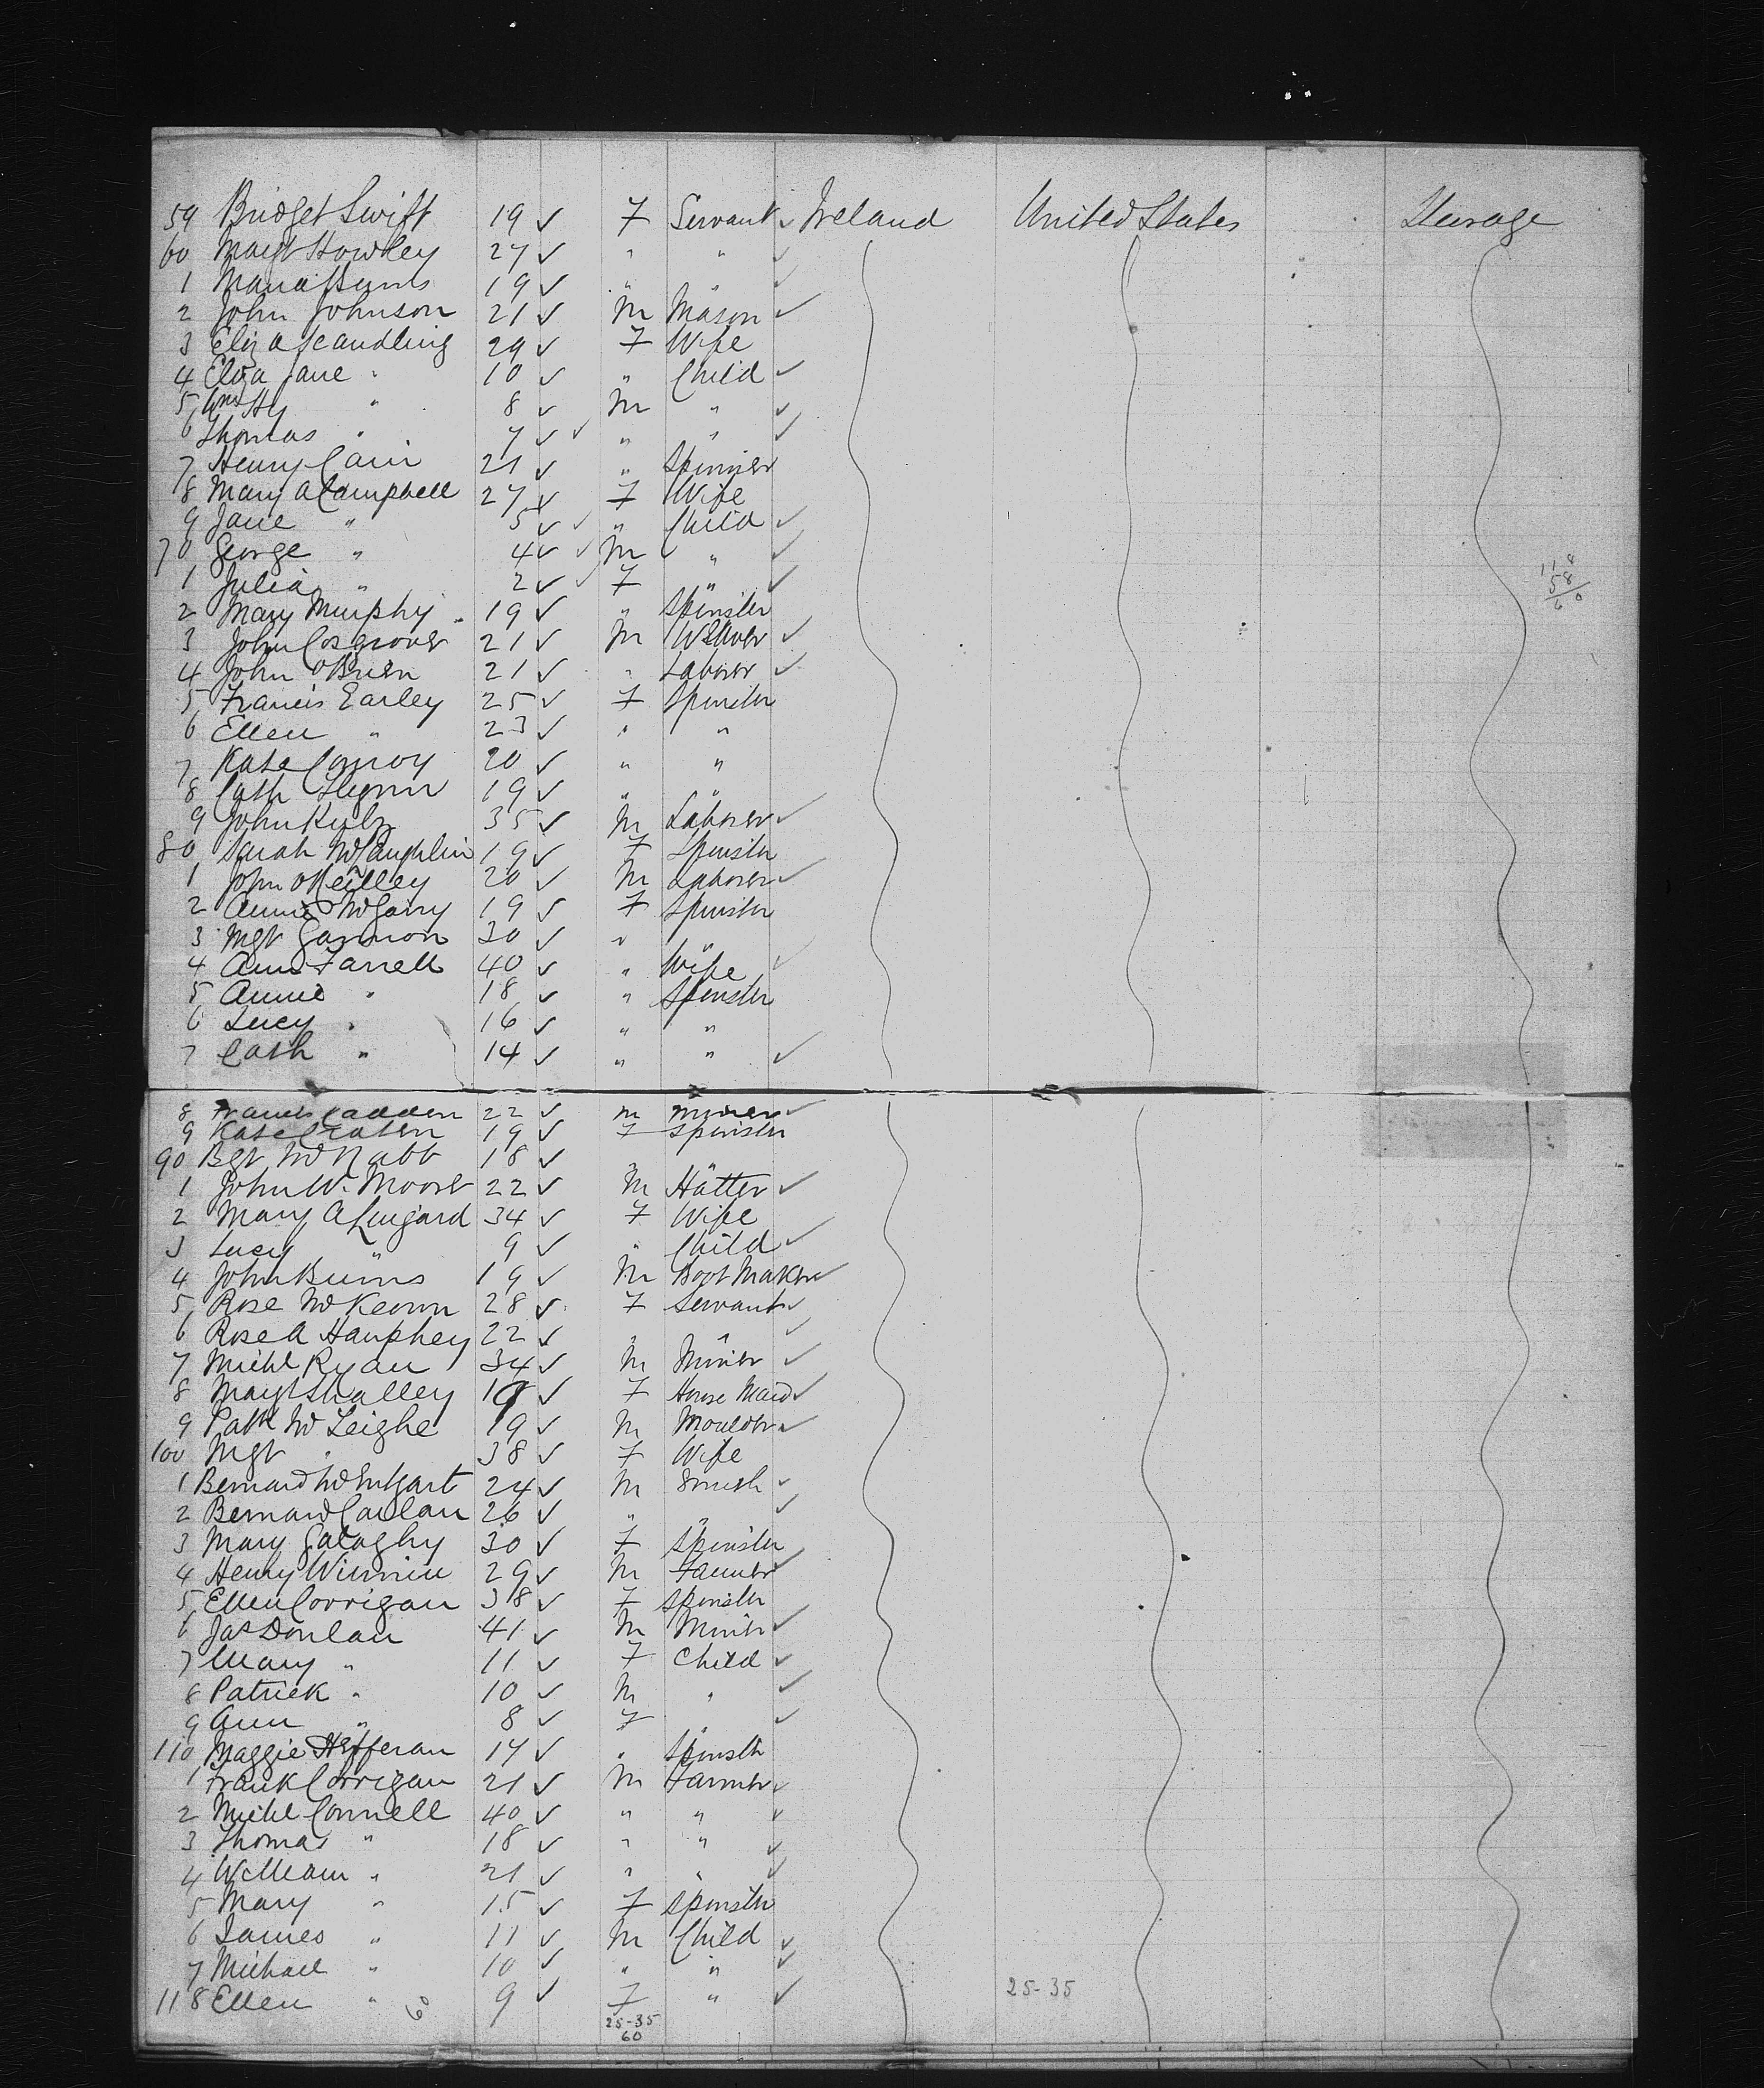 59 Bridget Swift 19 ✓ F Servant ✓ Ireland United States Steerage
60 Margt Howley 27 ✓ " " ✓
1 Maria Burns 19 ✓ " " ✓
2 John Johnson 21 ✓ M Mason ✓
3 Eliza Scandling 29 ✓ F Wife
4 Eliza Jane " 10 ✓ " Child ✓
5 Wm Hy " 8 ✓ M " ✓
6 Thomas " 7 ✓ ✓ " " ✓
7 Henry Cain 21 ✓ " Spinner
8 Mary A Campbell 27 ✓ F Wife
9 Jane " 5 ✓ ✓ " Child ✓
70 George " 4 ✓ ✓ M " ✓
1 Julia " 2 ✓ ✓ F " ✓
118
58
60
2 Mary Murphy 19 ✓ " Spinster
3 John Cosgrover 21 ✓ M Weaver ✓
4 John O'Brien 21 ✓ " Laborer ✓
5 Francis Earley 25 ✓ F Spinster
6 Ellen " 23 ✓ " "
7 Kate Conroy 20 ✓ " "
8 Cath Flynn 19 ✓ " "
9 John 35 ✓ M Laborer ✓
80 Sarah McLaughlin 19 ✓ F Spinster
1 John O'Reilley 20 ✓ M Laborer ✓
2 Annie McGarry 19 ✓ F Spinster
3 Mgt Gannon 30 ✓ " "
4 Ann Farrell 40 ✓ " Wife ✓
5 Annie " 18 ✓ " Spinster
6 Lucy " 16 ✓ " "
7 Cath " 14 ✓ " " ✓
8 Francis Cadden 22 ✓ M Miner ✓
9 Kate 19 ✓ F Spinster
90 Bgt McNabb 18 ✓ " "
1 John W. Moore 22 ✓ M Hatter ✓
2 Mary A Lingard 34 ✓ F Wife
3 Lucy " 9 ✓ " Child ✓
4 John Burns 19 ✓ M Boot Maker ✓
5 Rose McKeown 28 ✓ F Servant ✓
6 Rose A Hamphey 22 ✓ " " ✓
7 Michl Ryan 34 ✓ M Miner ✓
8 Margt Shalley 19 ✓ F House Maid ✓
9 Patk McTeighe 19 ✓ M Moulder ✓
100 Mgt " 38 ✓ F Wife
1 Bernard McEntgart 24 ✓ M Smith ✓
2 Bernard Carlan 26 ✓ " " ✓
3 Mary Galaghy 30 ✓ F Spinster
4 Henry Winnin 29 ✓ M Farmer ✓
5 Ellen Corrigan 38 ✓ F Spinster
6 Jas Donlan 41 ✓ M Miner ✓
7 Mary " 11 ✓ F Child ✓
8 Patrick " 10 ✓ M " ✓
9 Ann " 8 ✓ F " ✓
110 Maggie Hefferan 17 ✓ " Spinster
1 Frank Corrigan 21 ✓ M Farmer ✓
2 Michl Connell 40 ✓ " " ✓
3 Thomas " 18 ✓ " " ✓
4 William " 21 ✓ " " ✓
5 Mary " 15 ✓ F Spinster
6 James " 11 ✓ M Child ✓
7 Michael " 10 ✓ " " ✓
118 Ellen " 60 9 ✓ F " ✓ 25-35
25-35
60